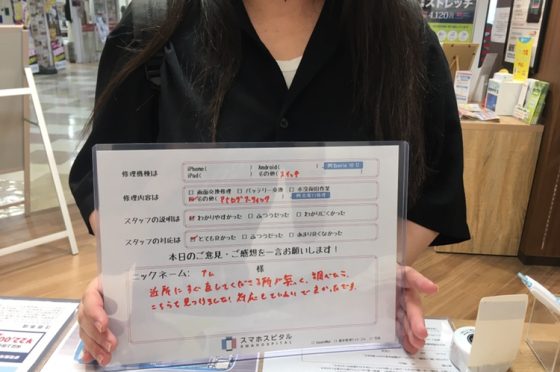 ストレッチ
4,120
修理機種は
iPhone( ) Android( )
iPad( ) その他( スイッチ
修理内容は
□ 画面交換修理 □ バッテリー交換 □ 水没復旧作業
その他( アナログスティック
スタッフの説明は
わかりやすかった □ ふつうだった □ わかりにくかった
スタッフの対応は
とても良かった □ ふつうだった □ あまり良くなかった
本日のご意見・ご感想を一言お願いします!
ニックネーム: 様
近所にすぐ直してくれる所が無く、調べたら、
こちらを見つけました。対応していただいてよかったです。
スマホスピタル
SMAHOSPITAL